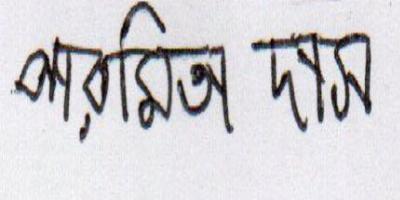 পারমিতা দাস